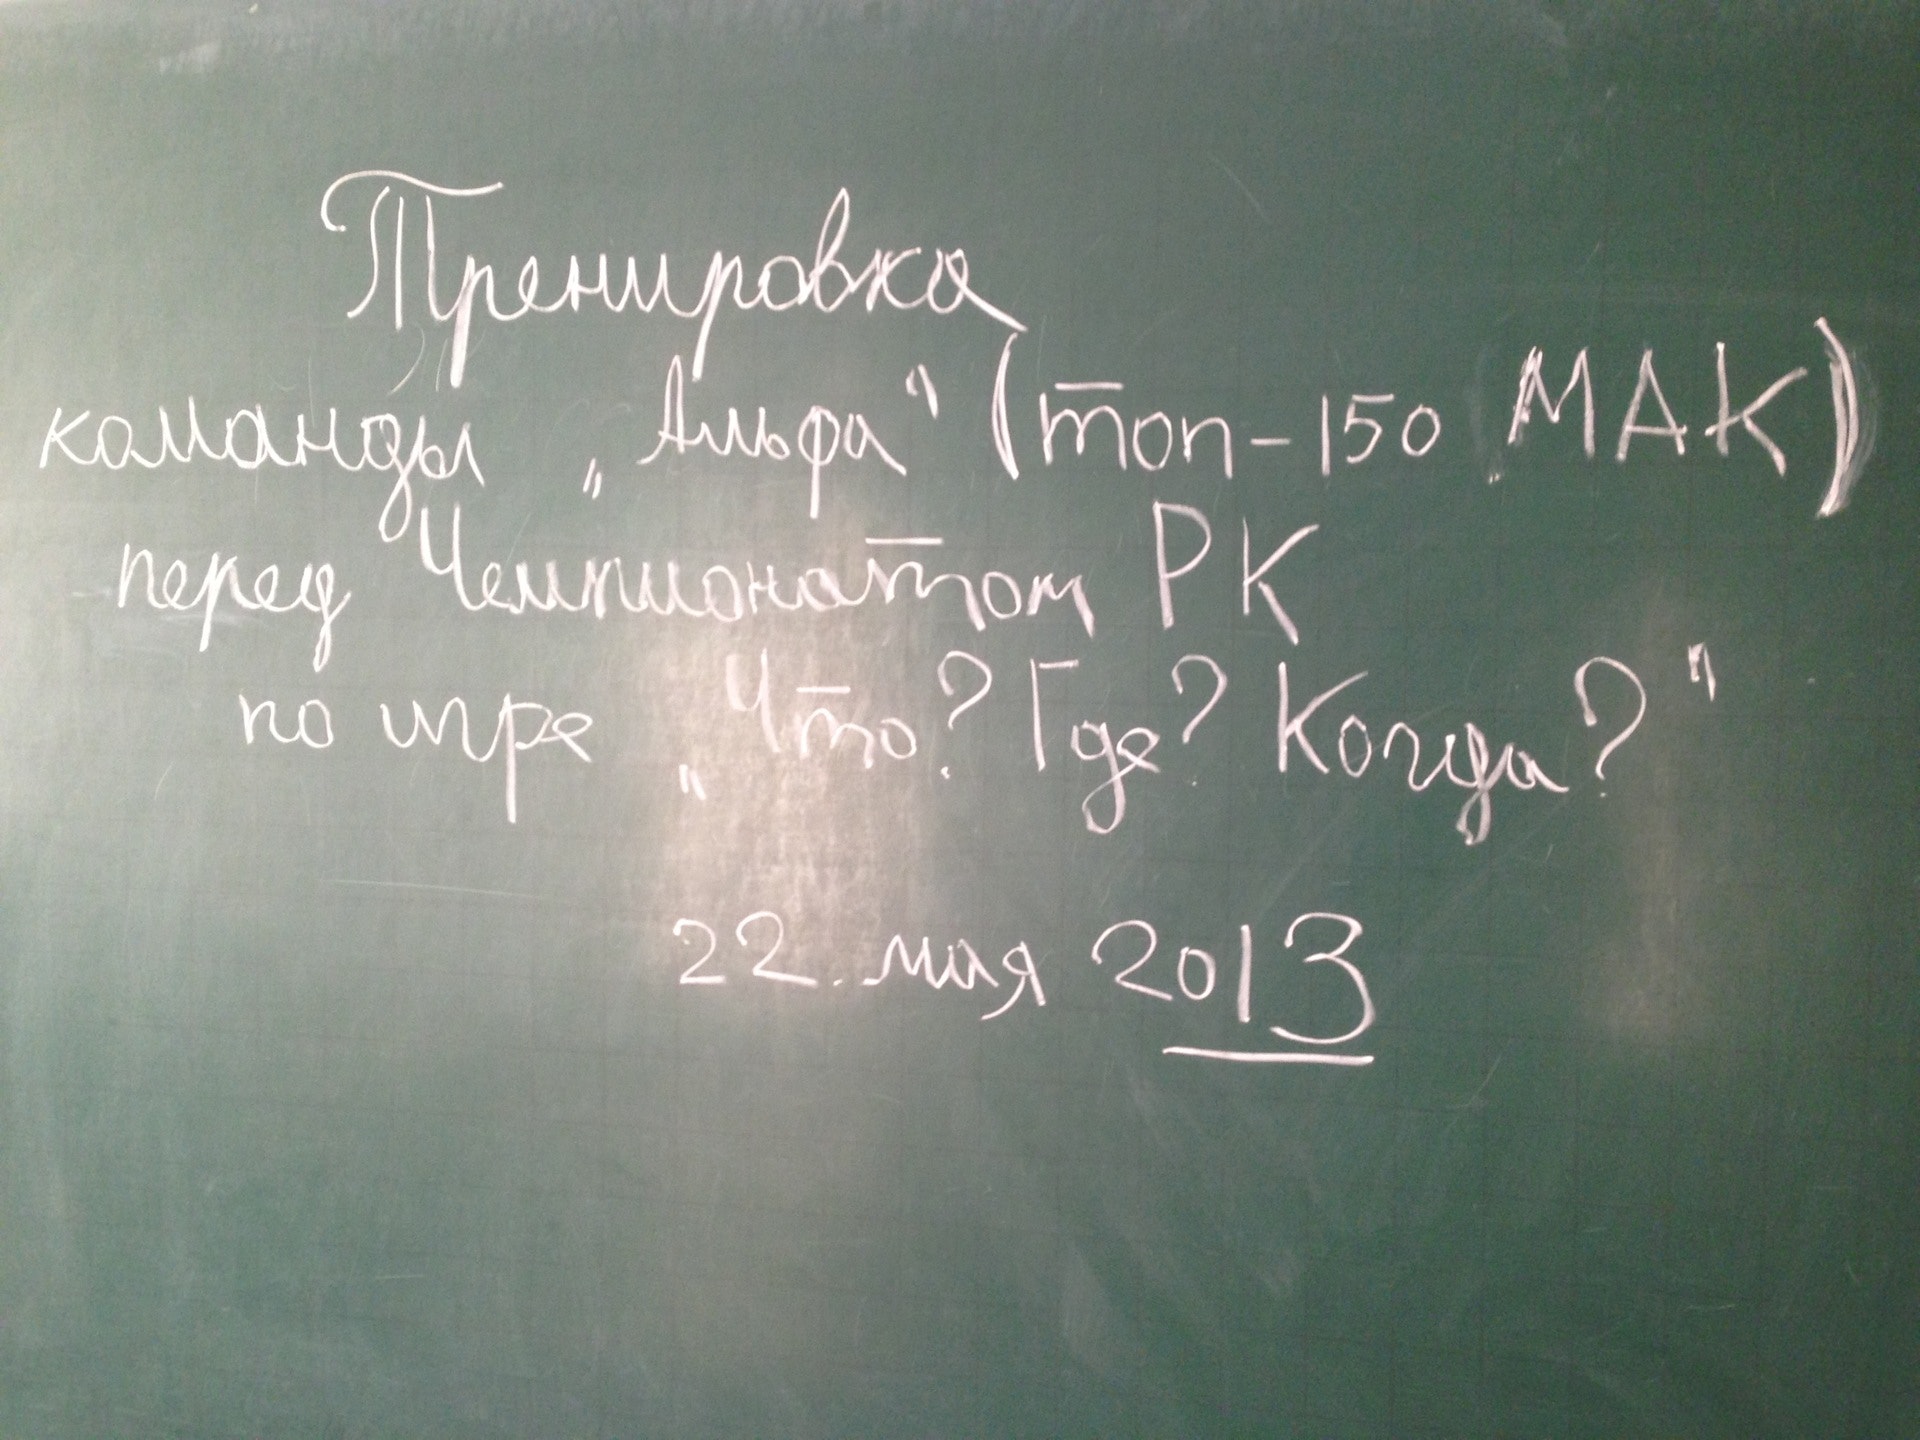 Тренировка
команды „Альфа" (топ-150 МАК)
перед Чемпионатом РК
по игре „Что? Где? Когда?"
22 мая 2013